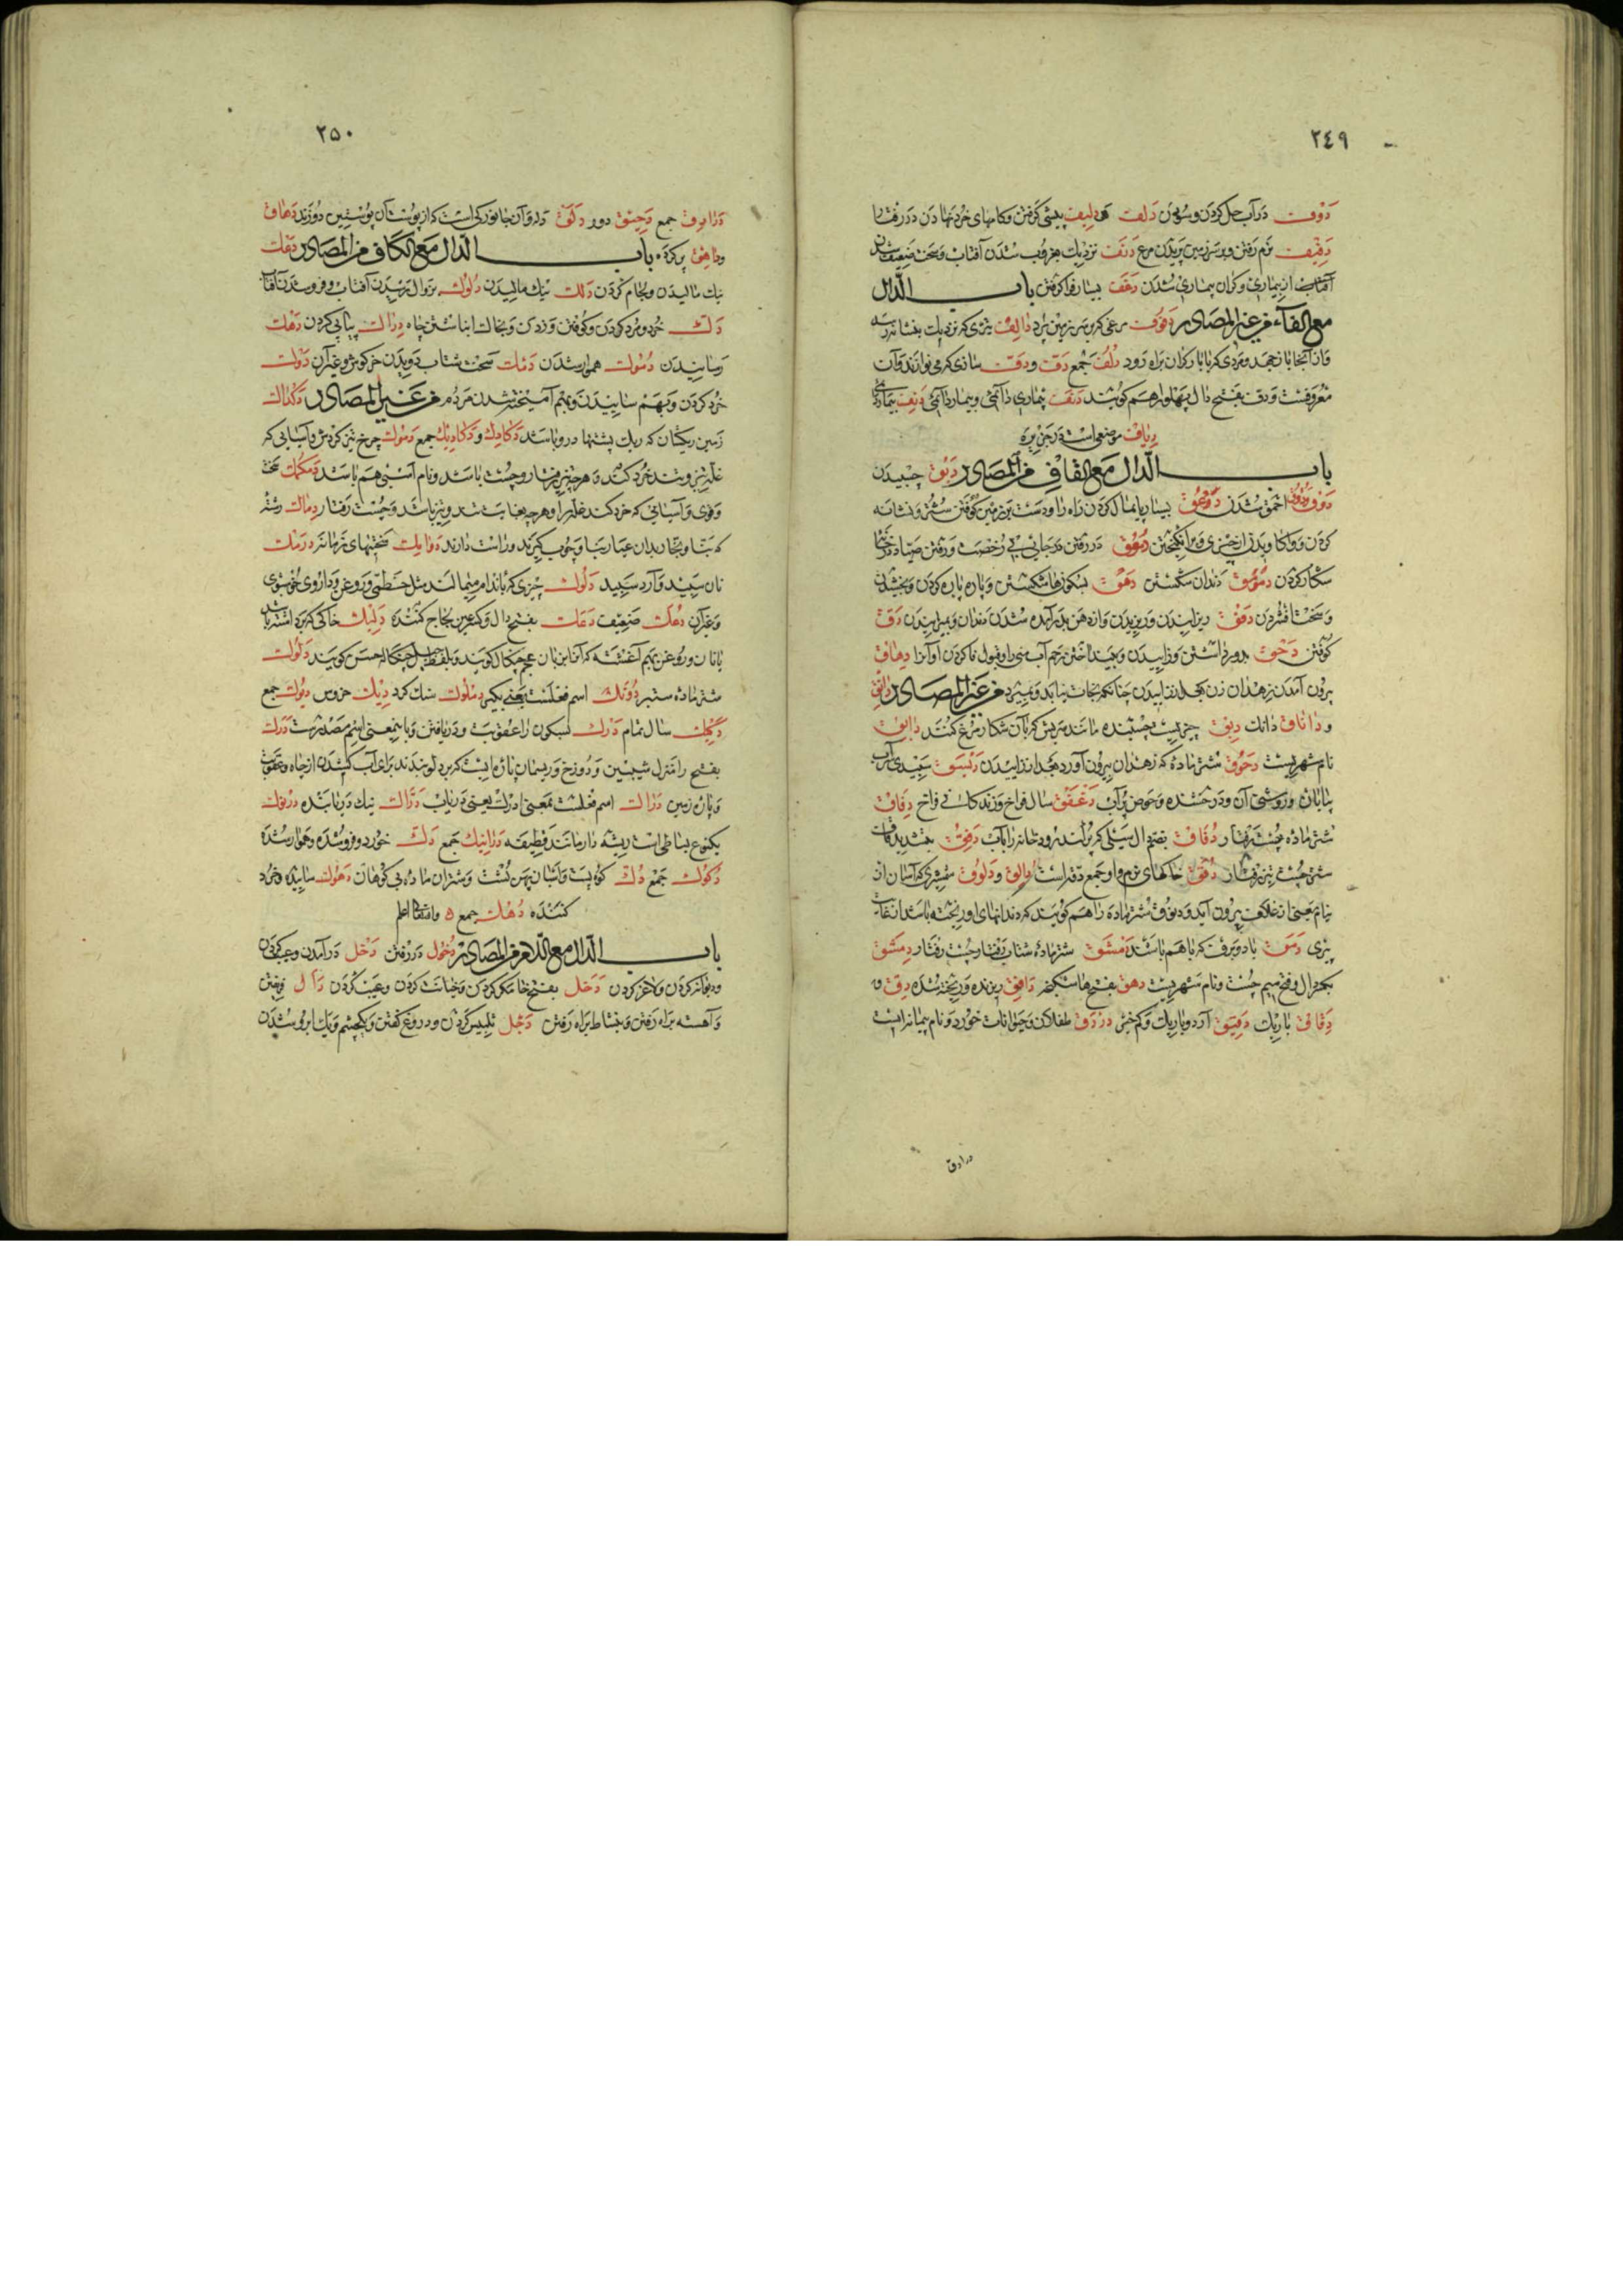 ٢٤٩
دوف در آب حل کردن و سودن دلف دلیف پیشی گرفتن و کامهای خرد نهادن در رفتار
دفیف نرم رفتن و بر سر زمین پریدن مرغ دنف نزدیک بغروب شدن آفتاب و سخت ضعیف شدن
آفتاب از بیماری و گران بیماری شدن دغف بسیار فرا گرفتن باب الدال
مع الفاء من غیر المصادر دفوف مرغی که بر سر زمین پرد دالف تیری که نزدیک بنشانه رسد
و از آنجا باز جهد و مردی که با بار گران براه رود دلف جمع دف و دف سازی که می نوازند و آن
معروفست و دف بفتح دال پهلو را هم گویند دنف بیماری دائمی و بیمار دائمی دنف بیمار
دیاف موضعی است در جزیره
باب الدال مع القاف من المصادر دبق چسبیدن
احمق شدن دعق بسیار پایمال کردن راه را و دست بر زمین کوفتن ستور و نشانه
کردن در رفتن در جائی بی رخصت و رفتن صیاد در خانه
شکار کردن دندان شکستن دهق شکستن و پاره پاره کردن و بخشیدن
و سخت افشردن دفق ریزانیدن و ریزیدن و از دهن بدر آمده شدن دندان و میرانیدن دق
کوفتن دحق بدور داشتن و زاییدن و بینداختن رحم آب منی را و قبول نا کردن او آنرا دهاق
بیرون آمدن زهدان زن بعد از زاییدن چنانکه نجات نیابد و بمیرد من غیر المصادر دانق
و داناق دانک دبق چیزیست چسبنده مانند سریش که بآن شکار مرغ کنند دابق
نام شهریست دحوق شتر ماده که زهدان بیرون آورد بعد از زاییدن دیسق سپیدی سراب
بیابان و روشنی آن و درخشنده و حوض پر آب دغفق سال فراخ و زندگانی فراخ دفاق
شتر ماده چست رفتار دفاق بضم دال سیلی که پر کند رودخانه را بآب دفق بتشدید قاف
شتر چست تیز رفتار دقق خاکهای نرم و او جمع دقه است دالق و دلوق شمشیری که آسان از
نیام یعنی از غلاف بیرون آید و دلوق شتر ماده را هم گویند که دندانهای او ریخته باشد از غایت
پیری دمق باد و برف که باهم باشند دمشق شتر ماده شتاب رفتار و چست رفتار دمشق
بکسر دال و فتح میم چست و نام شهریست دهق بفتح ها شکنجه دافق ریزنده و ریخته شده دق و
دقاق باریک دقیق آرد و باریک و کم خیر دردق طفلکان و حیوانات خورد و نام پیمانه ایست
درادق
٢٥٠
درادق جمع دحیق دور دلق دله و آن جانورکی است که از پوست آن پوستین دوزند دهاق
و داهق پر کرده باب الدال مع الکاف من المصادر دعک
نیک مالیدن و لجام کردن دلک نیک مالیدن دلوک بزوال رسیدن آفتاب و فرو شدن آفتاب
دک خرد و مرد کردن و کوفتن و زدن و بخاک انباشتن چاه دراک پیاپی کردن دهک
رسانیدن دموک هموار شدن دمک سخت شتاب دویدن خرگوش و غیر آن دوک
خرد کردن و بهم ساییدن و بهم آمیخته شدن مردم من غیر المصادر دکداک
زمین ریگستان که ریک پشتها درو باشد دکادک و دکادیک جمع دموک چرخ تیز گردش و آسیائی که
غله تیز و تند خرد کند و هر چیز تیز رفتار و چست باشد و نام اسبی هم باشد دمکمک سخت
و قوی و آسیائی که خرد کند غله را و هر چه بغایت تند و تیز باشد و چست رفتار دماک رشته
که بنا و نجار بدان عیار بنا و چوب گیرند و راست دارند دوامک سختیهای زمانه درمک
نان سپید و آرد سپید دلوک چیزی که بر اندام میمالند مثل خطمی و روغن و داروی خوشبوی
و غیر آن دعک ضعیف دعک بفتح دال و کسر عین لجاج کننده دلیک خاکی که برد
با نان و روغن بهم آغشته که آنرا بزبان عجم چنگال گویند و بلفظ چنگاله حسن گویند دلوک
شتر ماده ستبر دونک اسم فعلست یعنی بگیر دملوک سنگ گرد دیک خروس دیوک جمع
دکیک سال تمام درک بسکون را عقوبت و دریافتن و با معنی اسم مصدرست درک
بفتح را منزل شیبین و دوزخ و ریسمان پاره ایست که بر دلو بندند برای آب کشیدن از چاه و عقوبت
و پاره زمین دراک اسم فعلست بمعنی ادرک یعنی دریاب دراک نیک دریابنده درنوک
یکنوع بساطی است ریشه دار مانند قطیفه درانیک جمع دک خورد و فرو شده و هموار شده
دکوک جمع دک کوه پست و اسبان پهن پشت و شتران ماده بی کوهان دهوک ساینده و خرد
کننده دهک جمع ه والله اعلم
باب الدال مع اللام من المصادر دخول در رفتن دخل در آمدن و عیب کردن
و دیوانه کردن و لاغر کردن دخل بفتح خا مکر کردن و خیانت کردن و عیب کردن دال فریفتن
و آهسته براه رفتن و بنشاط براه رفتن دجل تلبیس کردن و دروغ گفتن و یکچشم و یک ابرو شدن